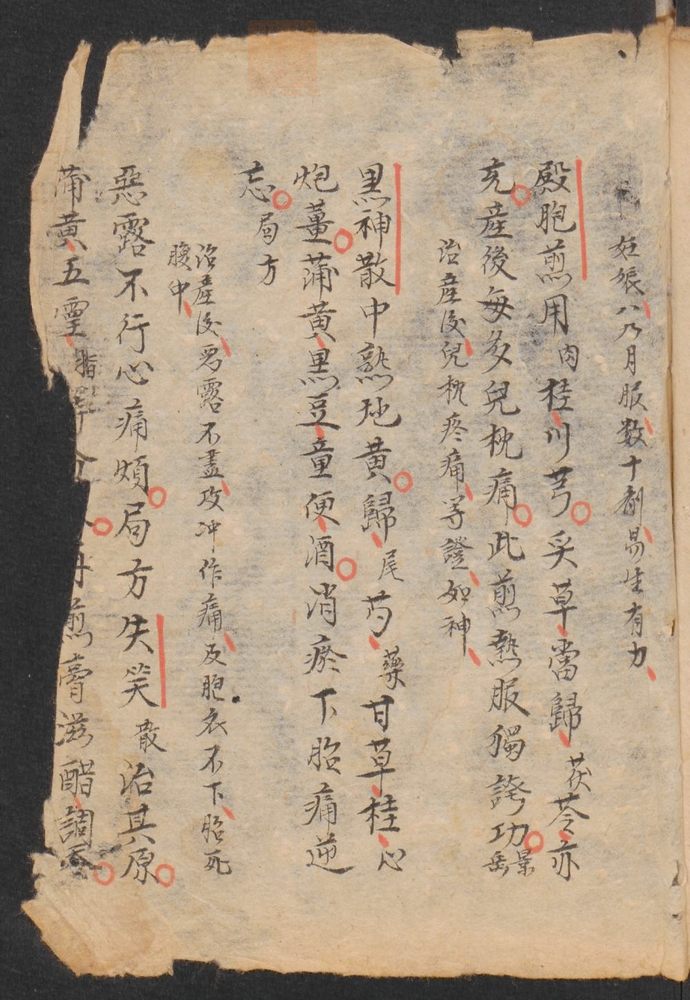 妊娠八九月服数十劑易生有力
殿胞煎用肉桂川芎炙草當歸茯苓亦
充產後每多兒枕痛此煎熟服獨誇功景岳
治產後兒枕疼痛等證如神
黑神散中熟地黃歸尾芍藥甘草桂心
炮薑蒲黃黑豆童便酒消瘀下胎痛逆
忘局方
治產後惡露不盡攻冲作痛及胞衣不下胎死
腹中
惡露不行心痛煩局方失笑散治其原
蒲黃五靈 煎膏滋醋調